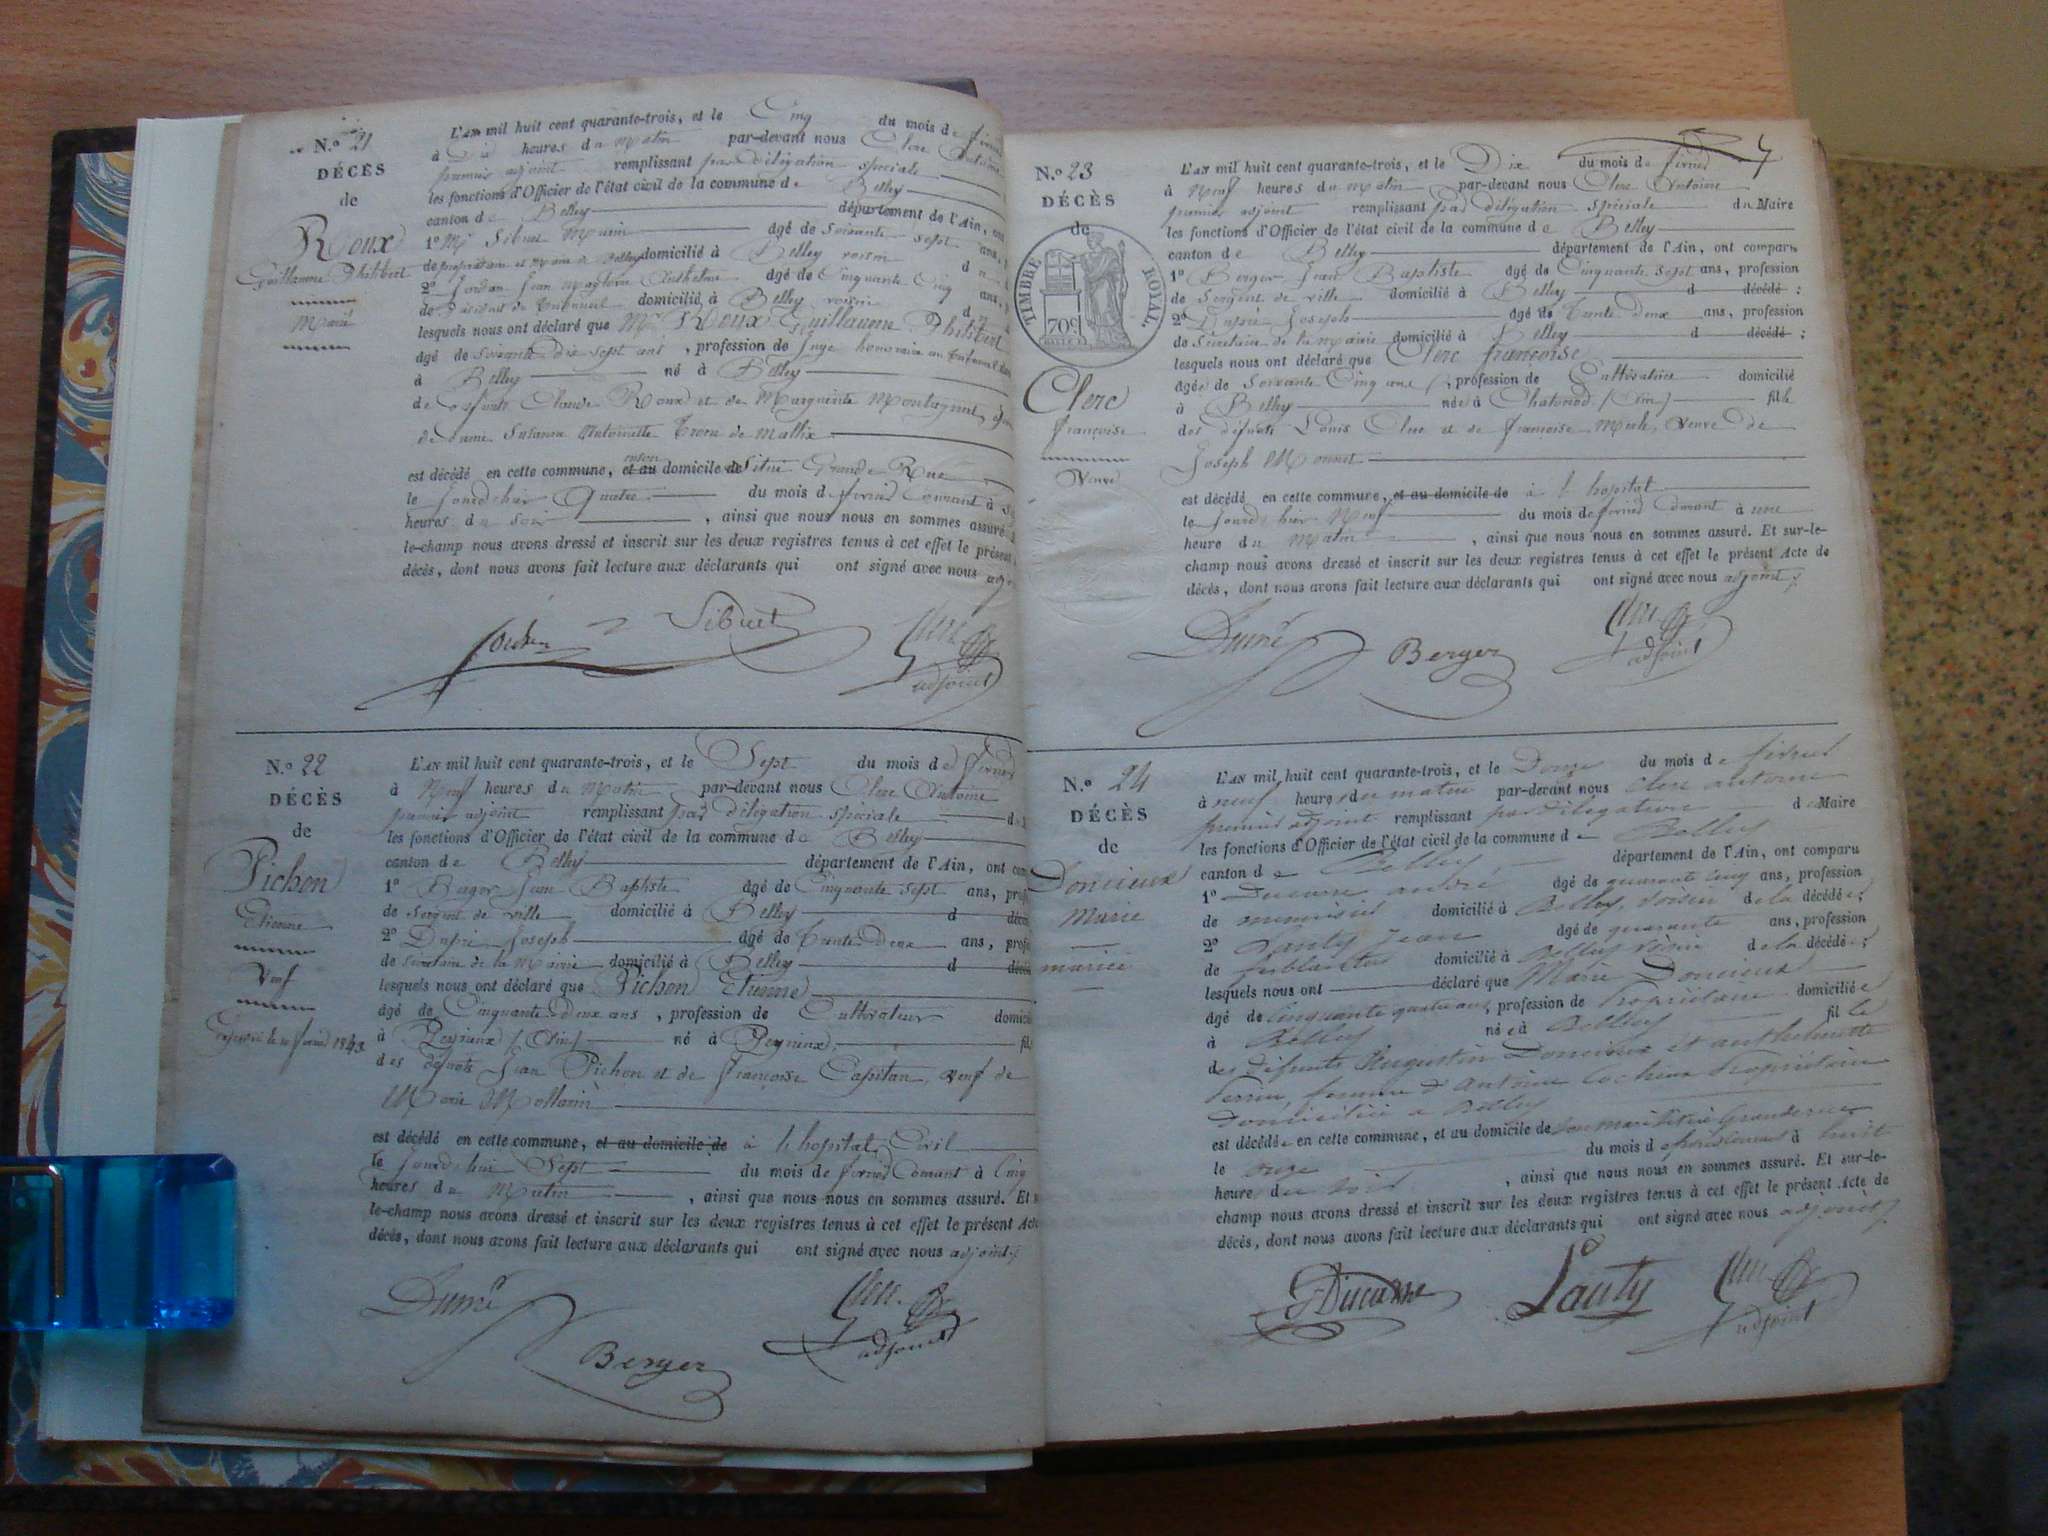 N.º 21
DÉCÈS
de
Roux
Guillaume Philibert
Marié
L'AN mil huit cent quarante-trois, et le Cinq du mois de
à Dix heures du Matin par-devant nous Clerc Antoine
premier adjoint remplissant par délégation spéciale
les fonctions d'Officier de l'état civil de la commune de Belley
canton de Belley département de l'Ain, ont
1º Mr Sibuet agé de soixante sept ans,
de propriétaire et Maire de Belley domicilié à Belley voisin d
2º Jordan Jean Anthelme agé de Cinquante Cinq ans,
de Président du tribunal domicilié à Belley voisin d
lesquels nous ont déclaré que Mr Roux Guillaume Philibert
agé de soixante Dix sept ans, profession de Juge honoraire au tribunal
à Belley né à Belley
de défunts Claude Roux et de Marguerite Montagnat,
de dame Suzanne Antoinette de
est décédé en cette commune, et au domicile de Située Grande Rue
le Jourd'hier Quatre du mois de février Courant à
heures du soir, ainsi que nous nous en sommes assuré.
le-champ nous avons dressé et inscrit sur les deux registres tenus à cet effet le présent
décès, dont nous avons fait lecture aux déclarants qui ont signé avec nous
Jordan Sibuet Clerc
adjoint
N.º 22
DÉCÈS
de
Pichon
Etienne
Veuf
1843
L'AN mil huit cent quarante-trois, et le Sept du mois de février
à Neuf heures du Matin par-devant nous Clerc Antoine
premier adjoint remplissant par délégation spéciale
les fonctions d'Officier de l'état civil de la commune de Belley
canton de Belley département de l'Ain, ont
1º Berger Jean Baptiste agé de Cinquante Sept ans,
de Sergent de ville domicilié à Belley d
2º Dupré Joseph agé de trente Deux ans,
de Secrétaire de la Mairie domicilié à Belley d
lesquels nous ont déclaré que Pichon Etienne
agé de Cinquante Deux ans, profession de Cultivateur
à Peyrieux (Ain) né à Peyrieux
des défunts Jean Pichon et de françoise Capitan, Veuf de
Marie
est décédé en cette commune, et au domicile de à l'hopital Civil
le Jourd'hui Sept du mois de février Courant à Cinq
heures du Matin, ainsi que nous nous en sommes assuré. Et
le-champ nous avons dressé et inscrit sur les deux registres tenus à cet effet le présent Acte
décès, dont nous avons fait lecture aux déclarants qui ont signé avec nous adjoint.
Dupré Clerc
Berger adjoint
7
N.º 23
DÉCÈS
de
TIMBRE ROYAL
70c
Clerc
françoise
Veuve
L'AN mil huit cent quarante-trois, et le Dix du mois de février
à Neuf heures du Matin par-devant nous Clerc Antoine
premier adjoint remplissant par délégation spéciale du Maire
les fonctions d'Officier de l'état civil de la commune de Belley
canton de Belley département de l'Ain, ont comparu
1º Berger Jean Baptiste agé de Cinquante Sept ans, profession
de Sergent de ville domicilié à Belley d décédé ;
2º Dupré Joseph agé de trente deux ans, profession
de Secrétaire de la Mairie domicilié à Belley d décédé ;
lesquels nous ont déclaré que Clerc françoise
agée de Soixante Cinq ans, profession de Cultivatrice domicilié
à Belley née à (Ain) fille
des défunts Louis Clerc et de françoise Veuve de
Joseph Monnet
est décédé en cette commune, et au domicile de à l'hopital
le Jourd'hier Neuf du mois de février Courant à une
heure du Matin, ainsi que nous nous en sommes assuré. Et sur-le-
champ nous avons dressé et inscrit sur les deux registres tenus à cet effet le présent Acte de
décès, dont nous avons fait lecture aux déclarants qui ont signé avec nous adjoint.
Dupré Berger Clerc
adjoint
N.º 24
DÉCÈS
de
Doncieux
Marie
mariée
L'AN mil huit cent quarante-trois, et le Douze du mois de février
à neuf heures du matin par-devant nous Clerc antoine
premier adjoint remplissant par délégation du Maire
les fonctions d'Officier de l'état civil de la commune de Belley
canton de Belley département de l'Ain, ont comparu
1º Ducarre andré agé de quarante cinq ans, profession
de menuisier domicilié à Belley, voisin de la décédée ;
2º Lauty Jean agé de quarante ans, profession
de ferblantier domicilié à Belley voisin de la décédée ;
lesquels nous ont déclaré que Marie Doncieux
agé de cinquante quatre ans, profession de Propriétaire domiciliée
à Belley née à Belley fille
des défunts Augustin Doncieux et anthelmette
Perrin, femme d'antoine Cochieux Propriétaire
Domicilié à Belley
est décédée en cette commune, et au domicile de son mari Située Grande rue
le onze du mois de à huit
heure du soir, ainsi que nous nous en sommes assuré. Et sur-le-
champ nous avons dressé et inscrit sur les deux registres tenus à cet effet le présent Acte de
décès, dont nous avons fait lecture aux déclarants qui ont signé avec nous adjoint.
Ducarre Lauty Clerc
adjoint